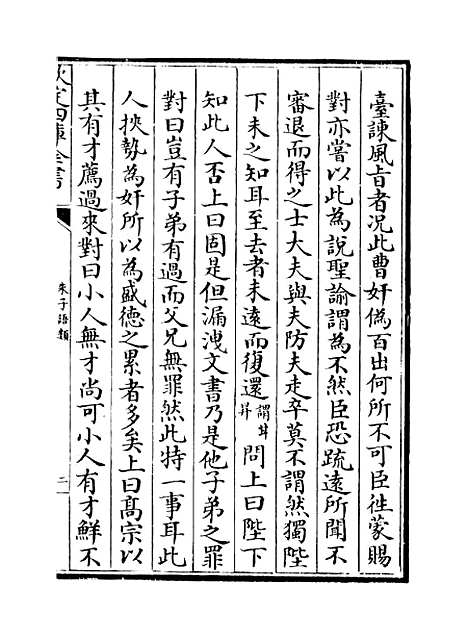 臺諫風㫖者况此曹奸僞百出何所不可臣徃蒙賜
對亦嘗以此為説聖諭謂為不然臣恐疏逺所聞不
審退而得之士大夫與夫防夫走卒莫不謂然獨陛
下未之知耳至去者未逺而復還謂甘昇問上曰陛下
知此人否上曰固是但漏洩文書乃是他子弟之罪
對曰豈有子弟有過而父兄無罪然此特一事耳此
人挾勢為奸所以為盛德之累者多矣上曰髙宗以
其有才薦過來對曰小人無才尚可小人有才鮮不
欽定四庫全書
朱子語類
二